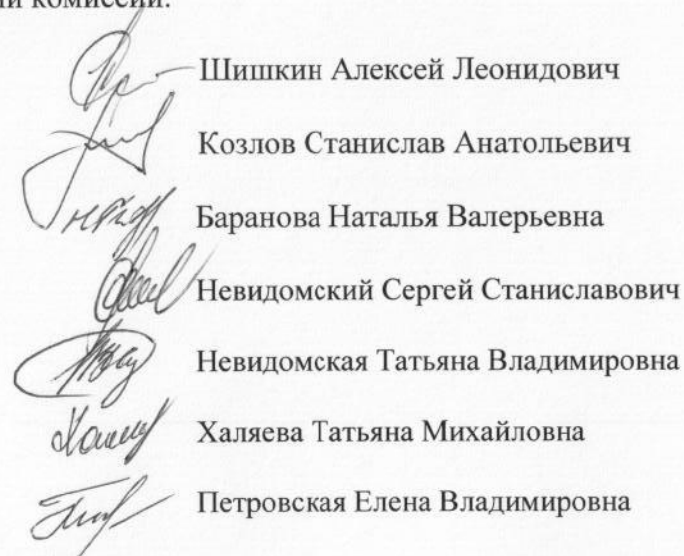 комиссии:
Шишкин Алексей Леонидович
Козлов Станислав Анатольевич
Баранова Наталья Валерьевна
Невидомский Сергей Станиславович
Невидомская Татьяна Владимировна
Халяева Татьяна Михайловна
Петровская Елена Владимировна